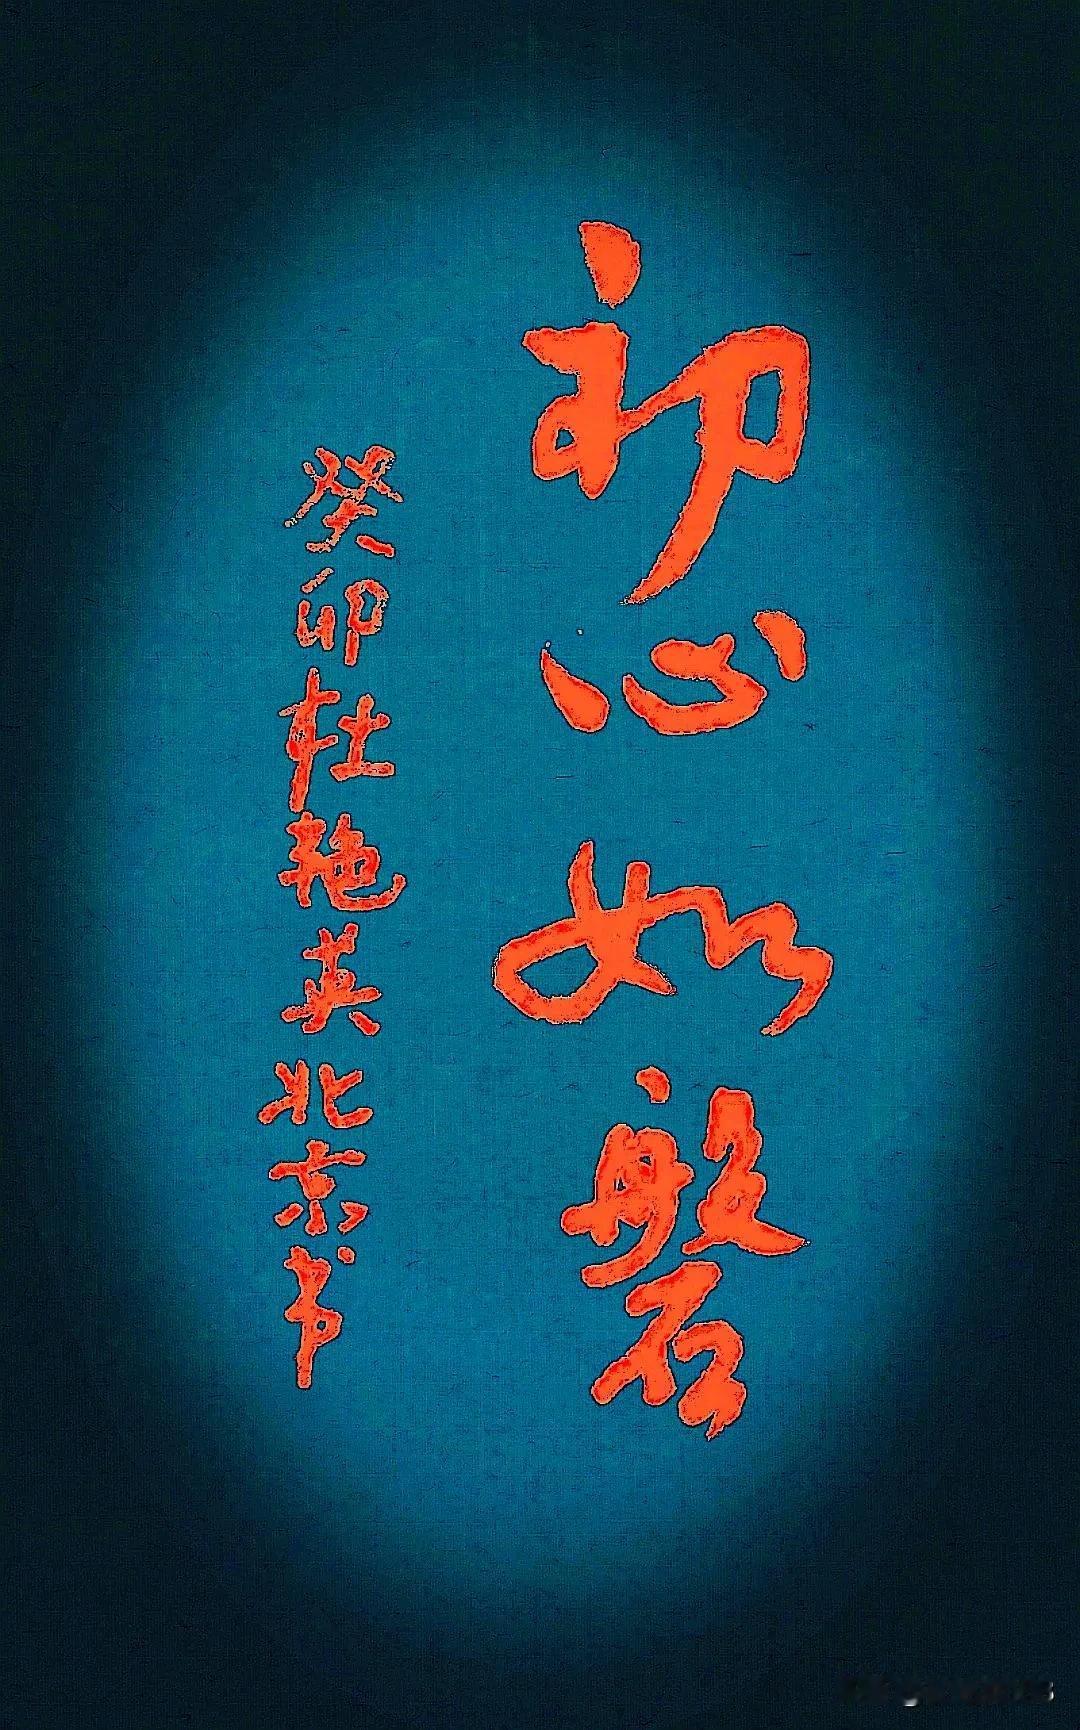 初心如磐
癸卯杜艳英北京书